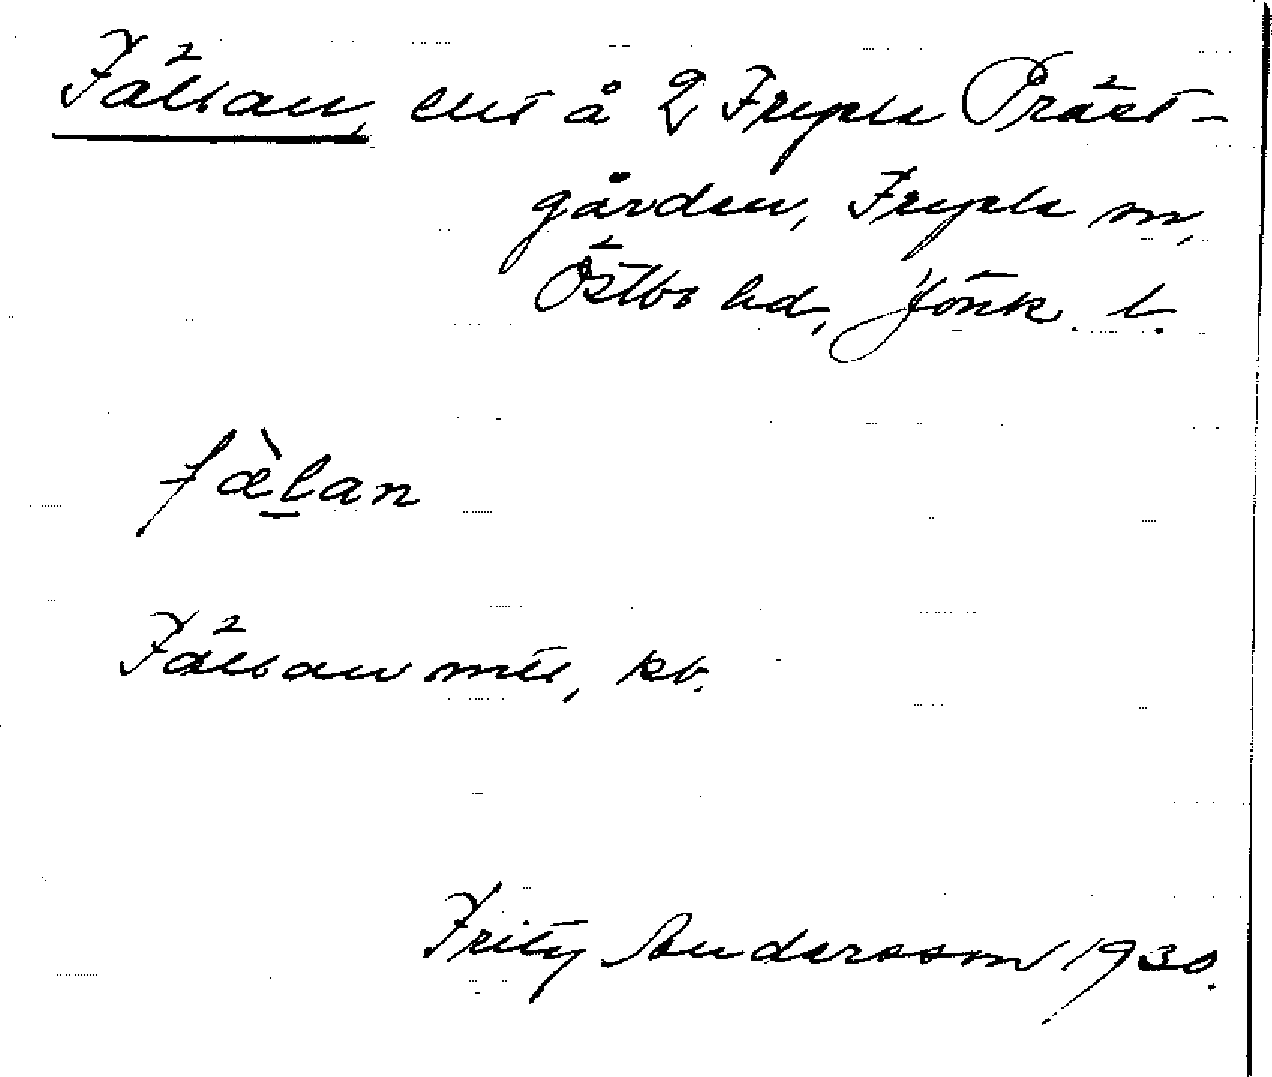 Fällan, ent å 2 Fryele Präst-
gården, Fryele sn,
Östbo hd, Jönk. l.
fælan
Fällan mtl, kb.
Fritz Andersson 1930.